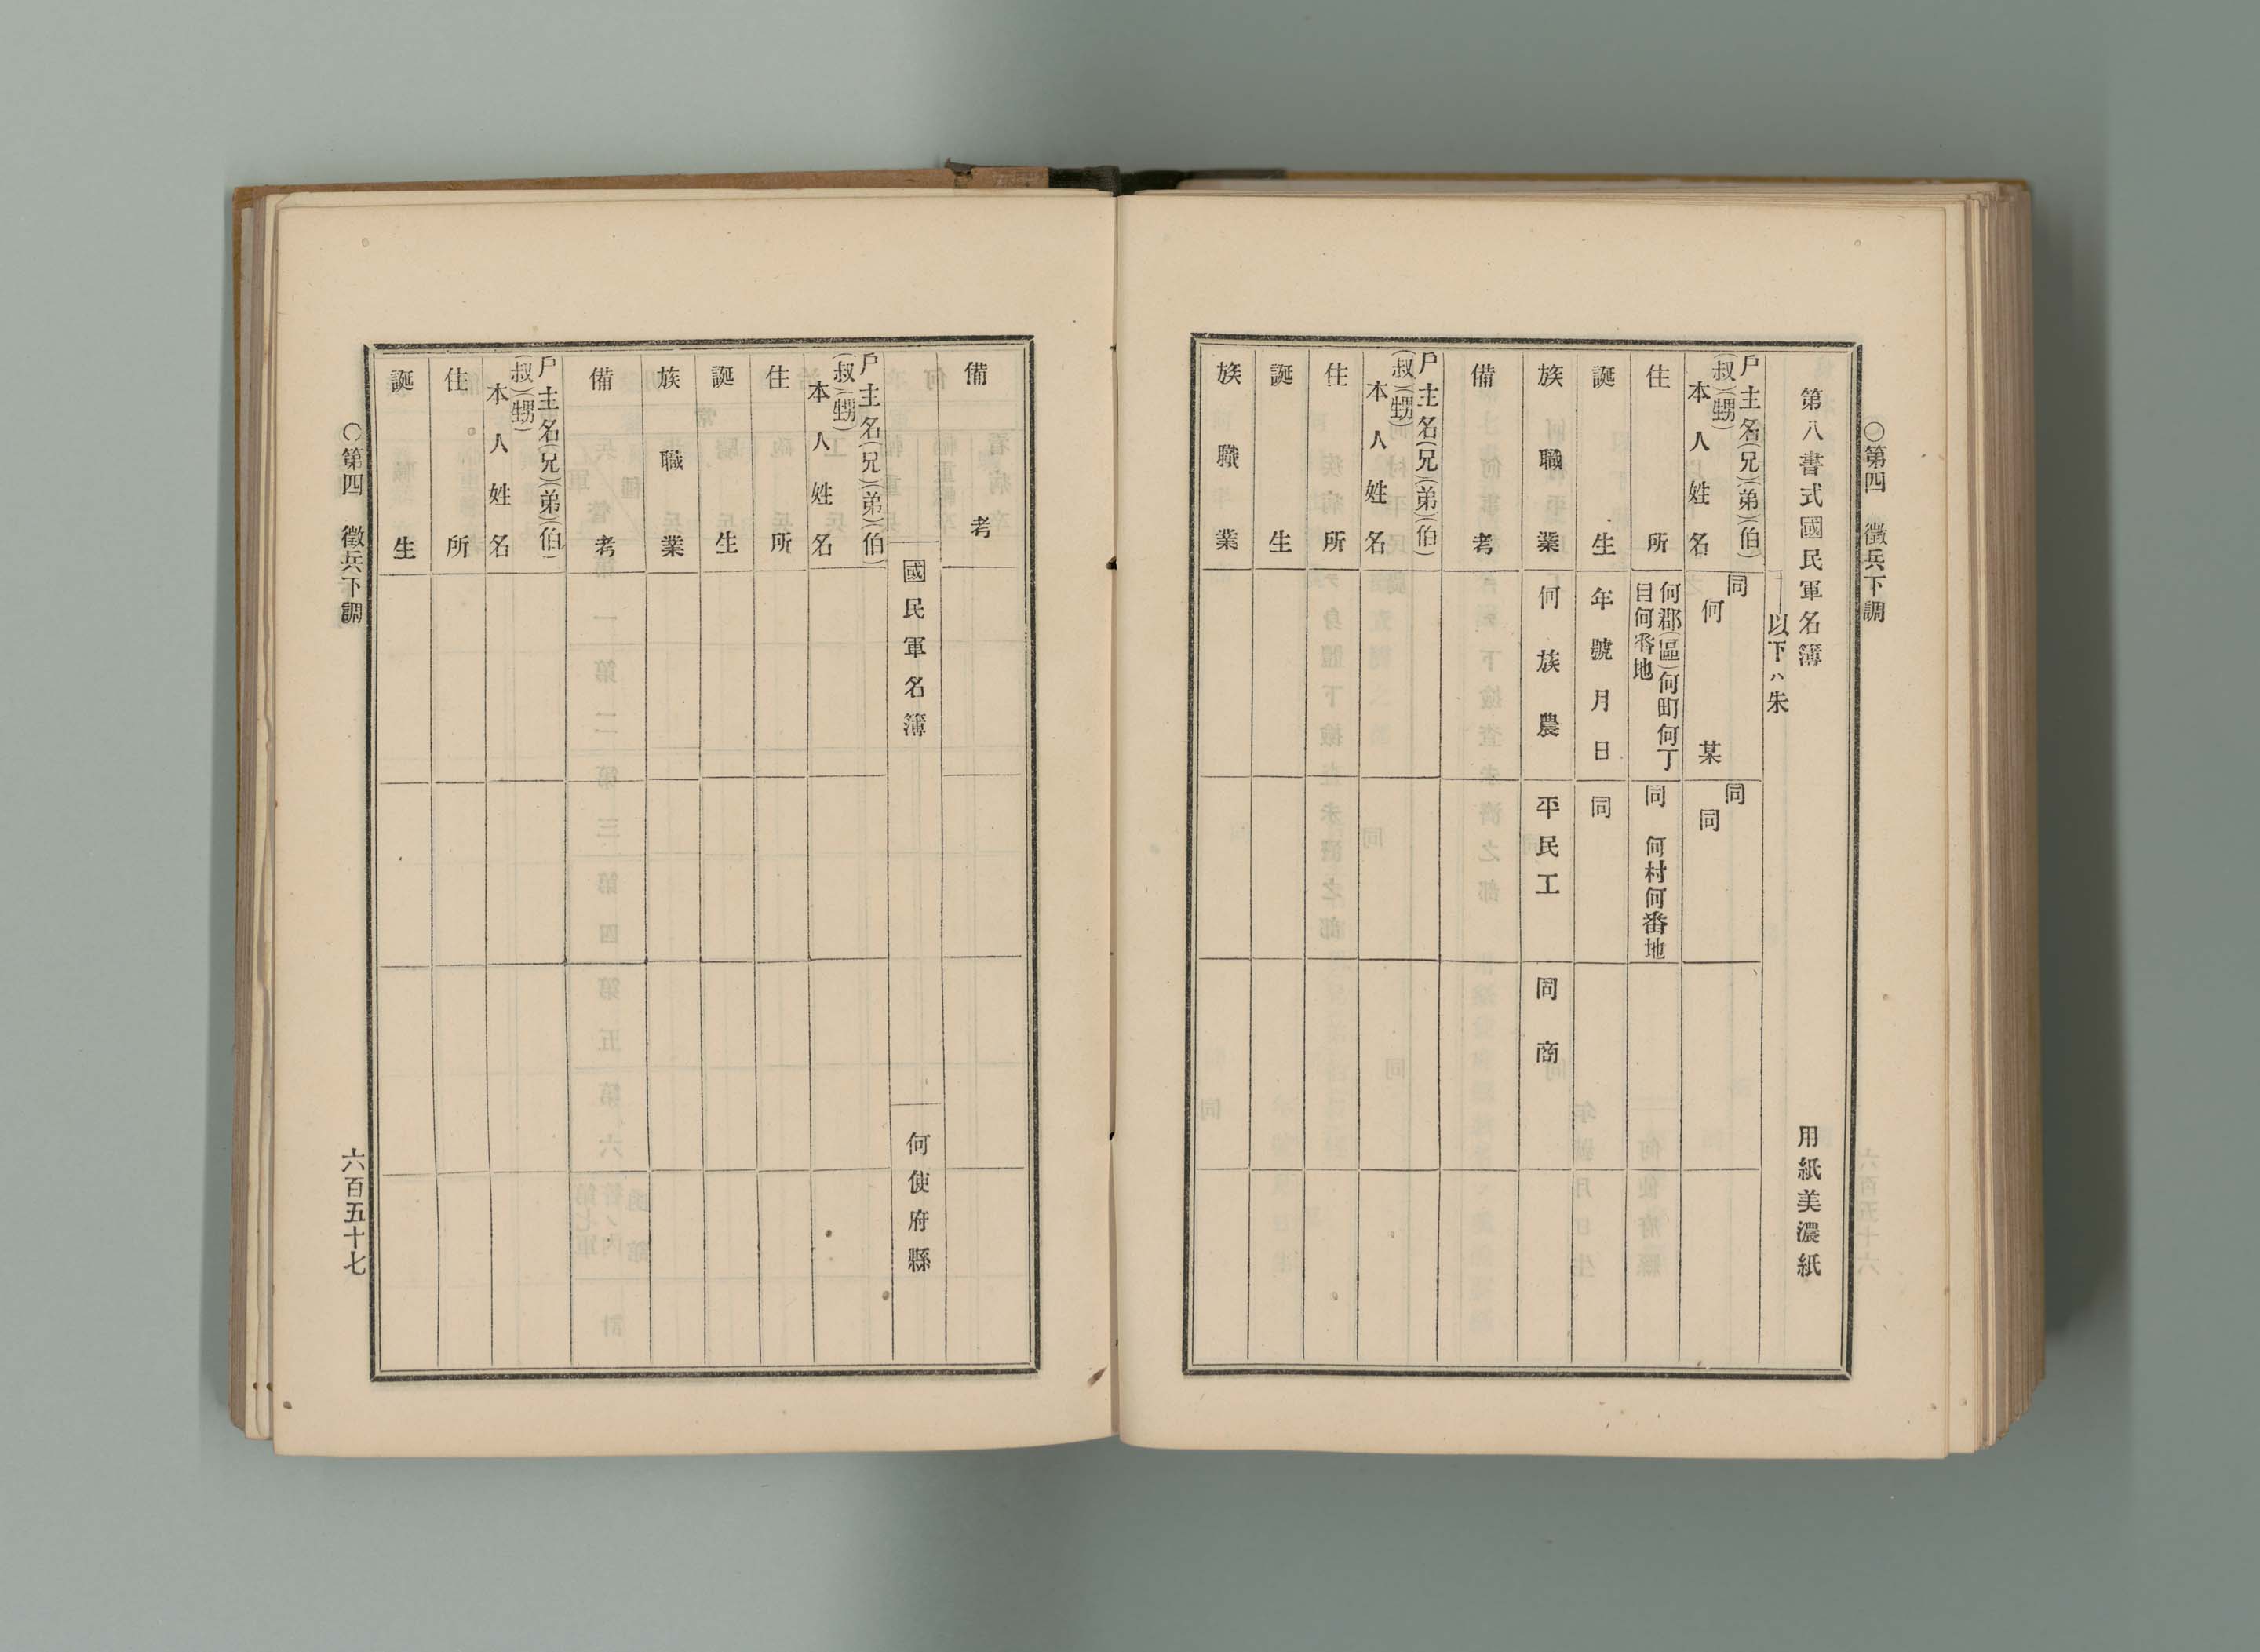 〇第四　徵兵下調
第八書式國民軍名簿　用紙美濃紙
以下ハ朱
戶主名(兄)(弟)(伯)
(叔)(甥)
本人姓名
同
何某
同
同
住所
何郡(區)何町何丁
目何番地
同　何村何番地
誕生
年號月日
同
族職業
何族農
平民工
同商
備考
戶主名(兄)(弟)(伯)
(叔)(甥)
本人姓名
住所
誕生
族職業
備考
國民軍名簿　何使府縣
戶主名(兄)(弟)(伯)
(叔)(甥)
本人姓名
住所
誕生
族職業
備考
戶主名(兄)(弟)(伯)
(叔)(甥)
本人姓名
住所
誕生
〇第四　徵兵下調
六百五十七